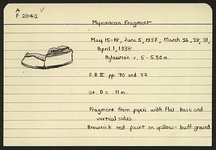 A
F 2842
Mycenaean Fragment
May 15-18, June 5, 1937, March 26, 28, 31,
April 1, 1938
Aqueduct r. 5 - 5.90 m.
O.B. II pp. 70 and 77
Gr. D = .11 m.
Fragment from pyxis with flat base and
vertical sides
Brownish red paint on yellow-buff ground